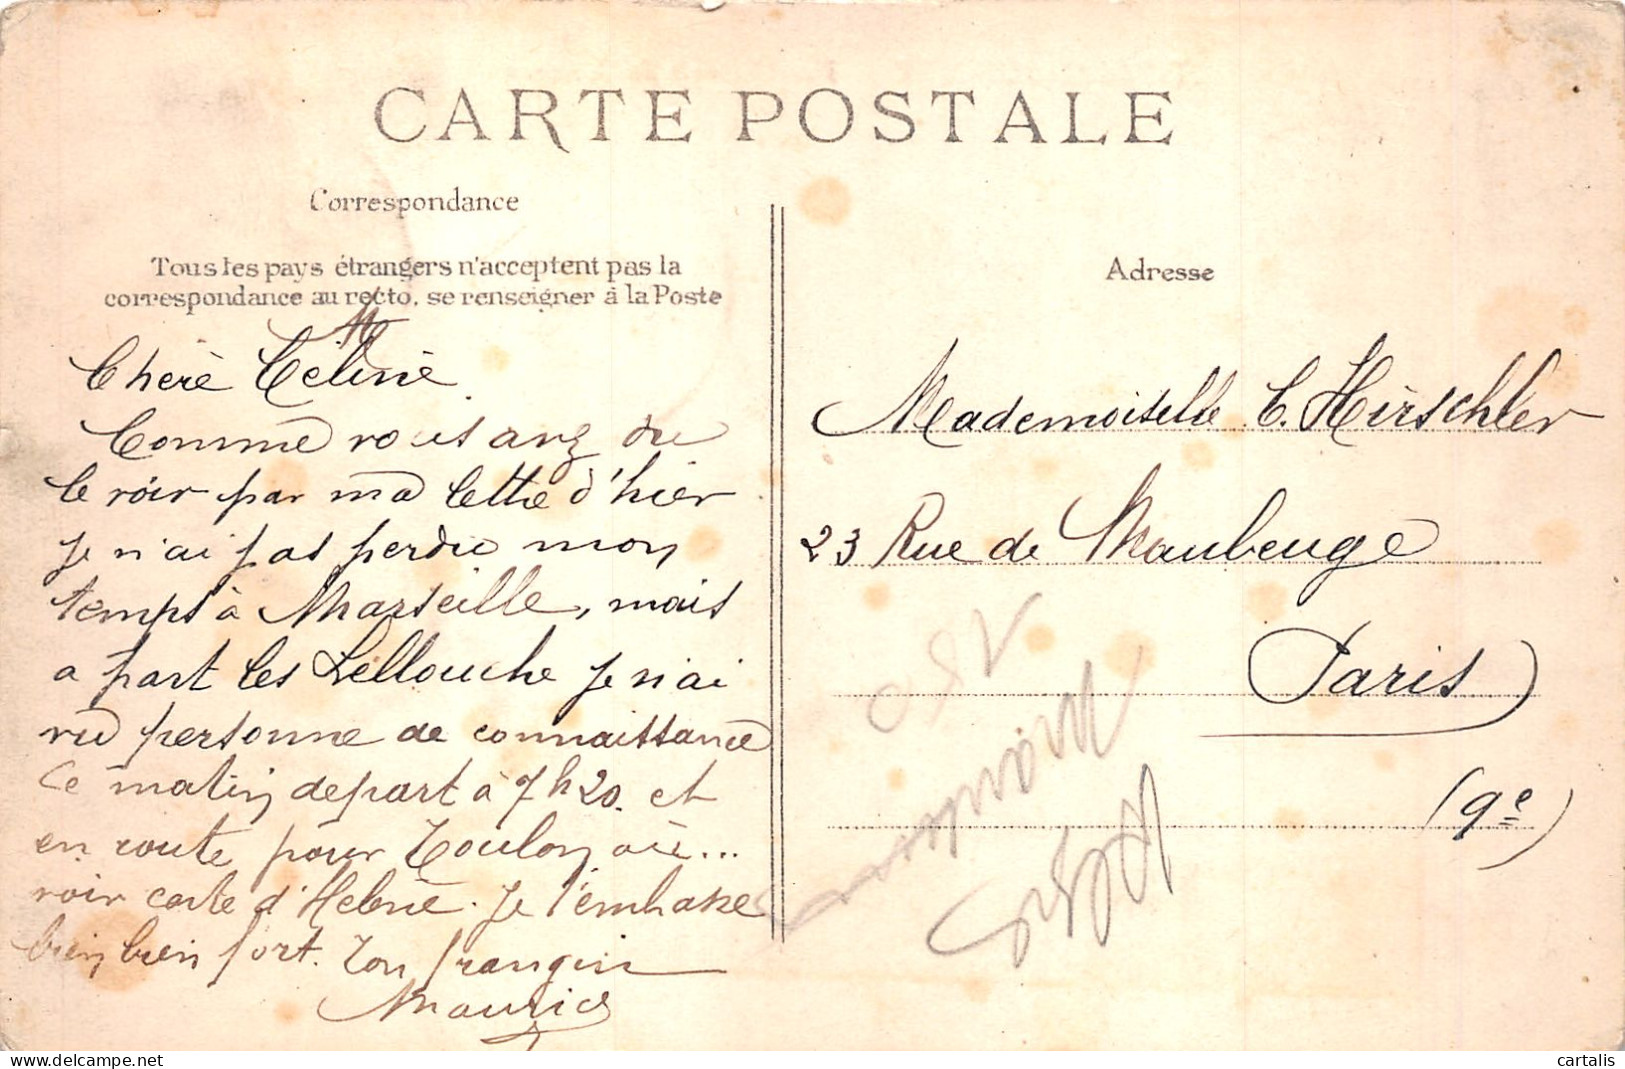 CARTE POSTALE
Correspondance
Tous les pays étrangers n'acceptent pas la
correspondance au recto, se renseigner à la Poste
Chère Celine
Comme vous avez du
le voir par ma lettre d'hier
je n'ai pas perdu mon
temps à Marseille, mais
a part les Lellouche je n'ai
vu personne de connaissance
Ce matin depart à 7h20. et
en route pour Toulon où...
voir carte d'Helene. Je t'embrasse
bien bien fort. Ton frangin
Maurice
Adresse
Mademoiselle C. Hirschler
23 Rue de Maubeuge
Paris
(9e)
delcampe.net
cartalis